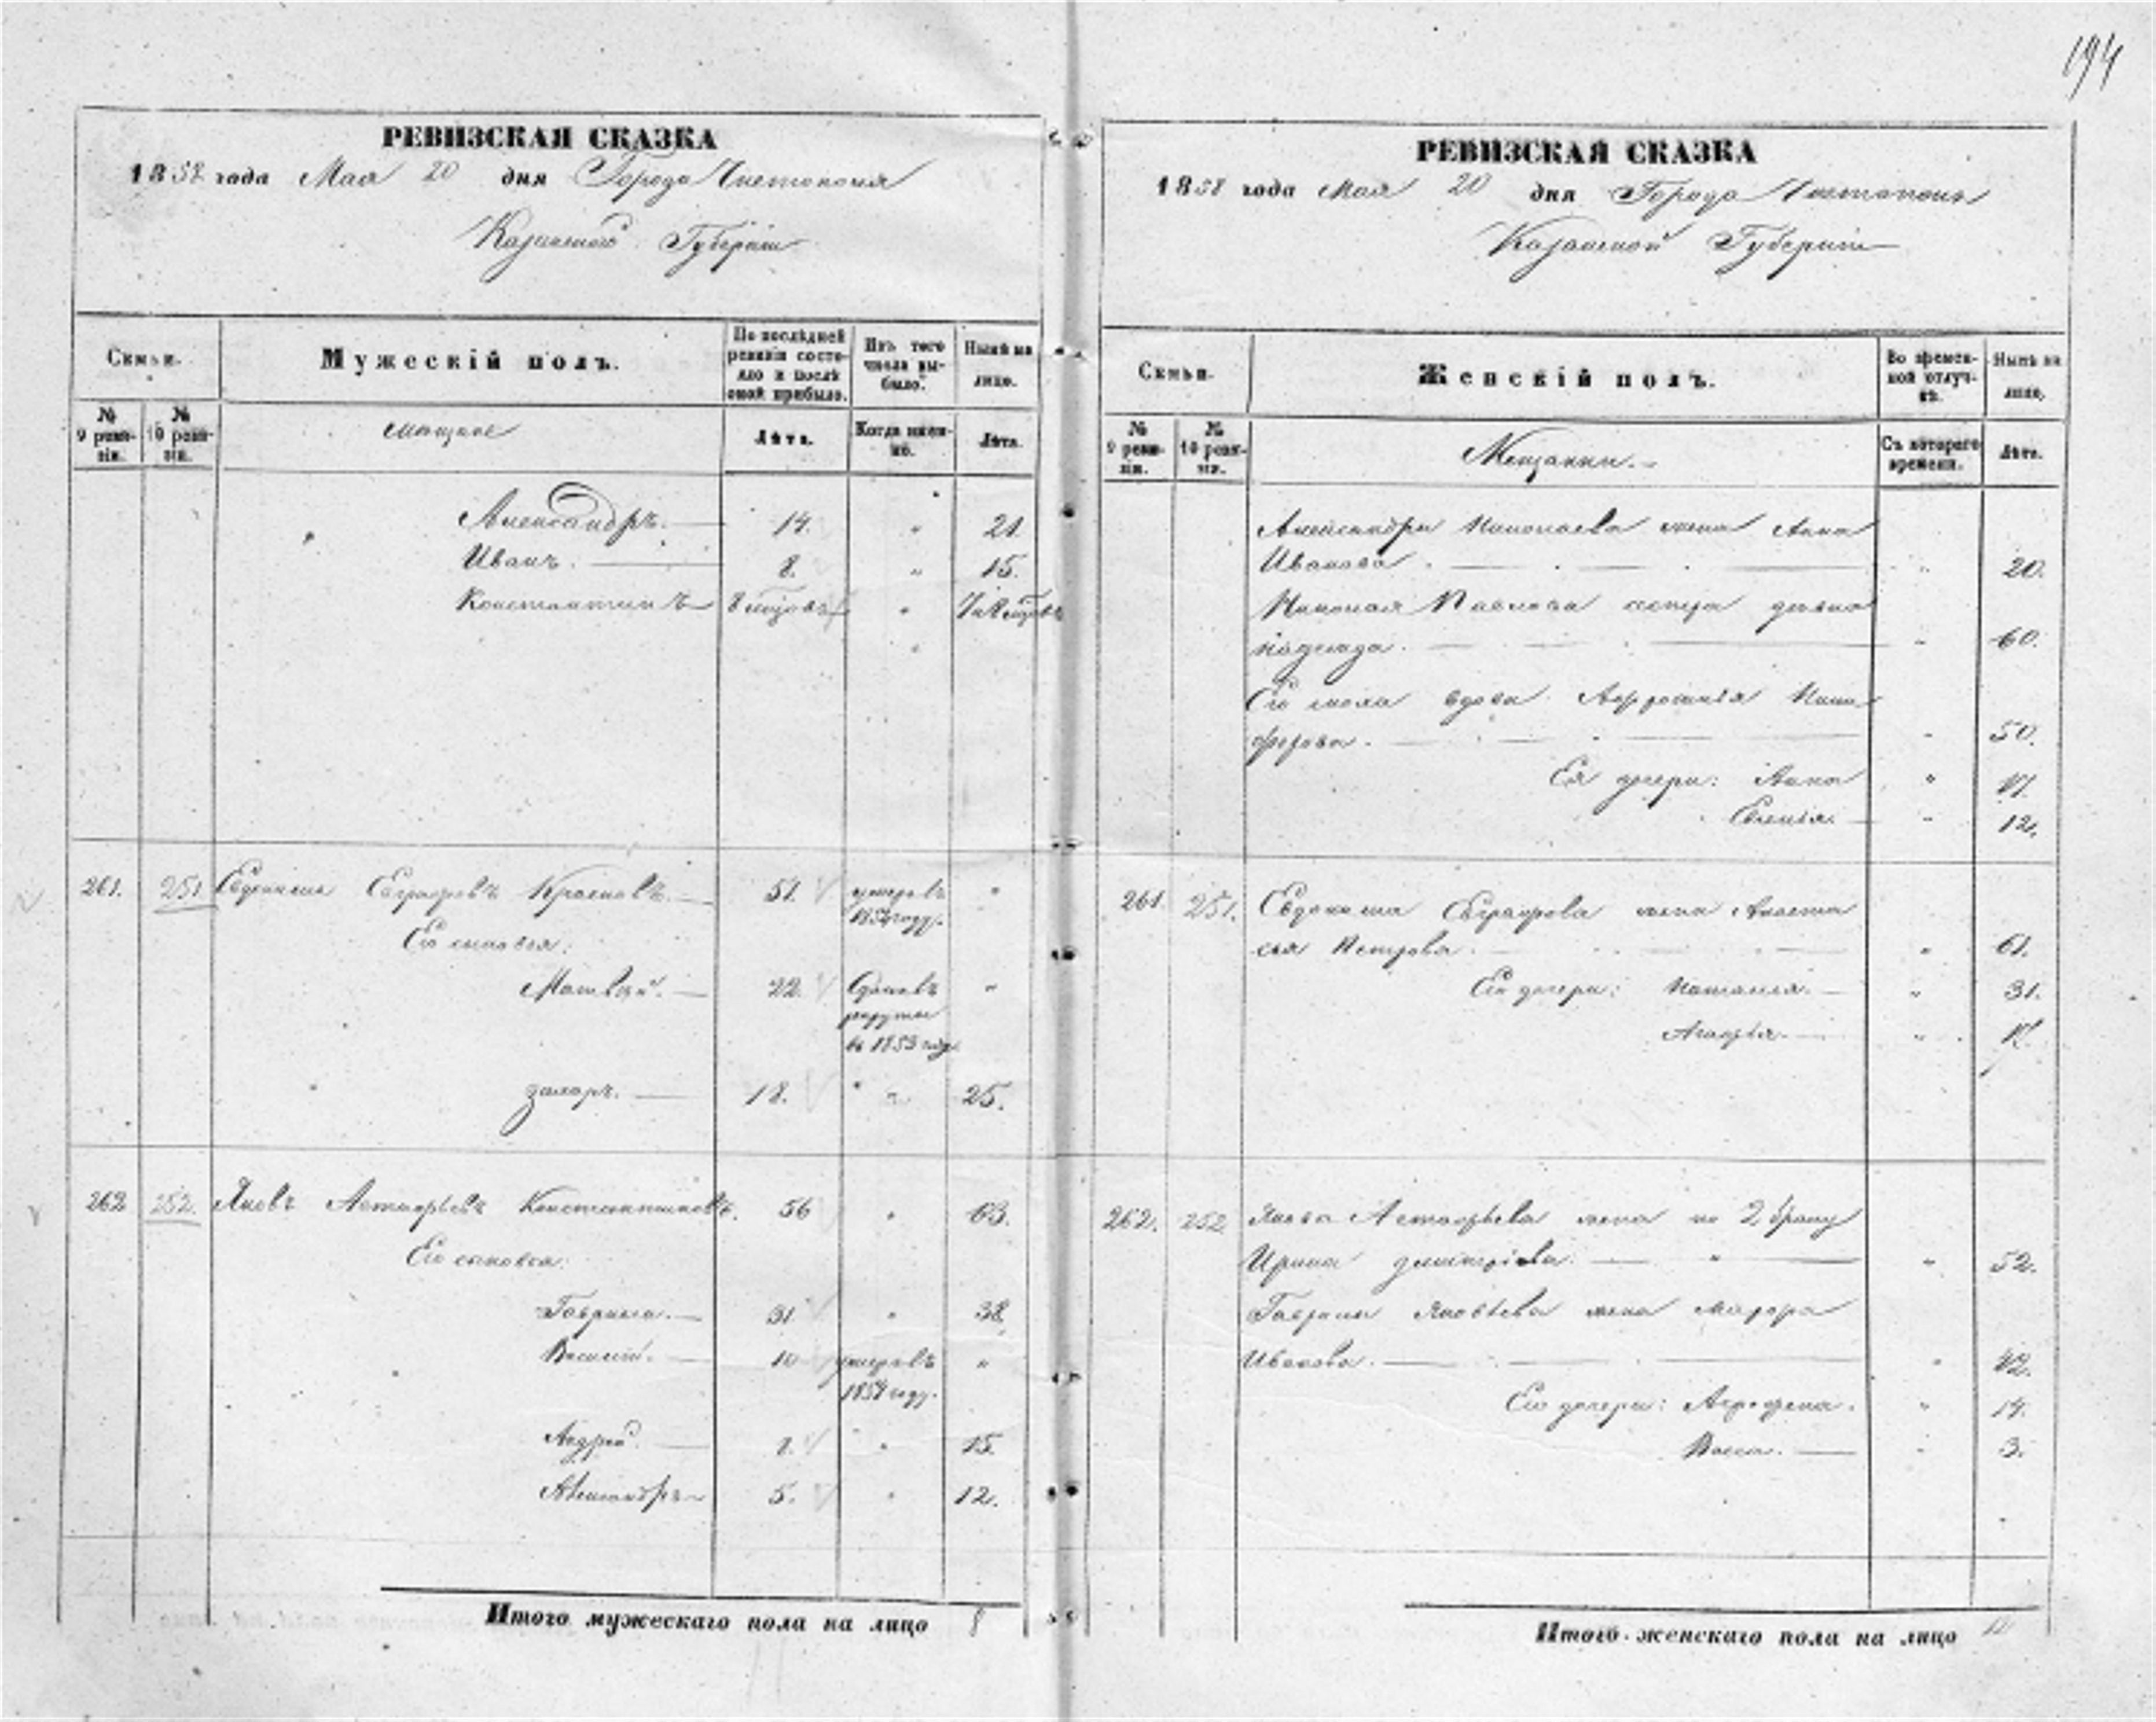 194
РЕВИЗСКАЯ СКАЗКА
1858 года Мая 20 дня Города Чистополя
Казанской Губернiи
Семьи.
Мужескiй полъ.
По послѣдней ревизiи состояло и послѣ оной прибыло.
Изъ того числа выбыло.
Нынѣ на лицо.
№ 9 ревизiи.
№ 10 ревизiи.
мѣщане
Лѣта.
Когда именно.
Лѣта.
Александръ. 14. " 21.
Иванъ. 8. " 15.
Константинъ 8 "
261. 251 Евдокимъ Евграфовъ Красновъ. 51. умеръ въ "
185 году.
Его сыновья:
Матвей. 22. Сданъ въ "
рекруты
въ 1853 году
Захаръ. 18. " 25.
262 252. Яковъ Астафьевъ Константиновъ. 56 " 63.
Его сыновья:
Гаврила. 31. " 38.
Василiй. 10 умеръ въ "
185 году.
Андрей. " 15.
Александръ 5. " 12.
Итого мужескаго пола на лицо 8
РЕВИЗСКАЯ СКАЗКА
1858 года Мая 20 дня Города Чистополя
Казанской Губернiи
Семьи.
Женскiй полъ.
Во временной отлучкѣ.
Нынѣ на лицо.
№ 9 ревизiи.
№ 10 ревизiи.
Мещанки.
Съ котораго времени.
Лѣта.
Александра Николаева жена Анна
Иванова. " 20.
Николая Павлова сестра девка
надежда. " 60.
Его сноха вдова Ники
форова. " 50.
Ея дочери: Анна "
" 12.
261. 251. Евдокима Евграфова жена Анаста
сья Петрова. " 61.
Его дочери: Наталья. " 31.
Агафья. "
262. 252 Якова Астафьева жена по 2 браку
Ирина дмитрiева. " 52.
Гаврилы Яковлева жена
Иванова. " 42.
Его дочери: Агрофена. " 14.
Васса. " 3.
Итого женскаго пола на лицо